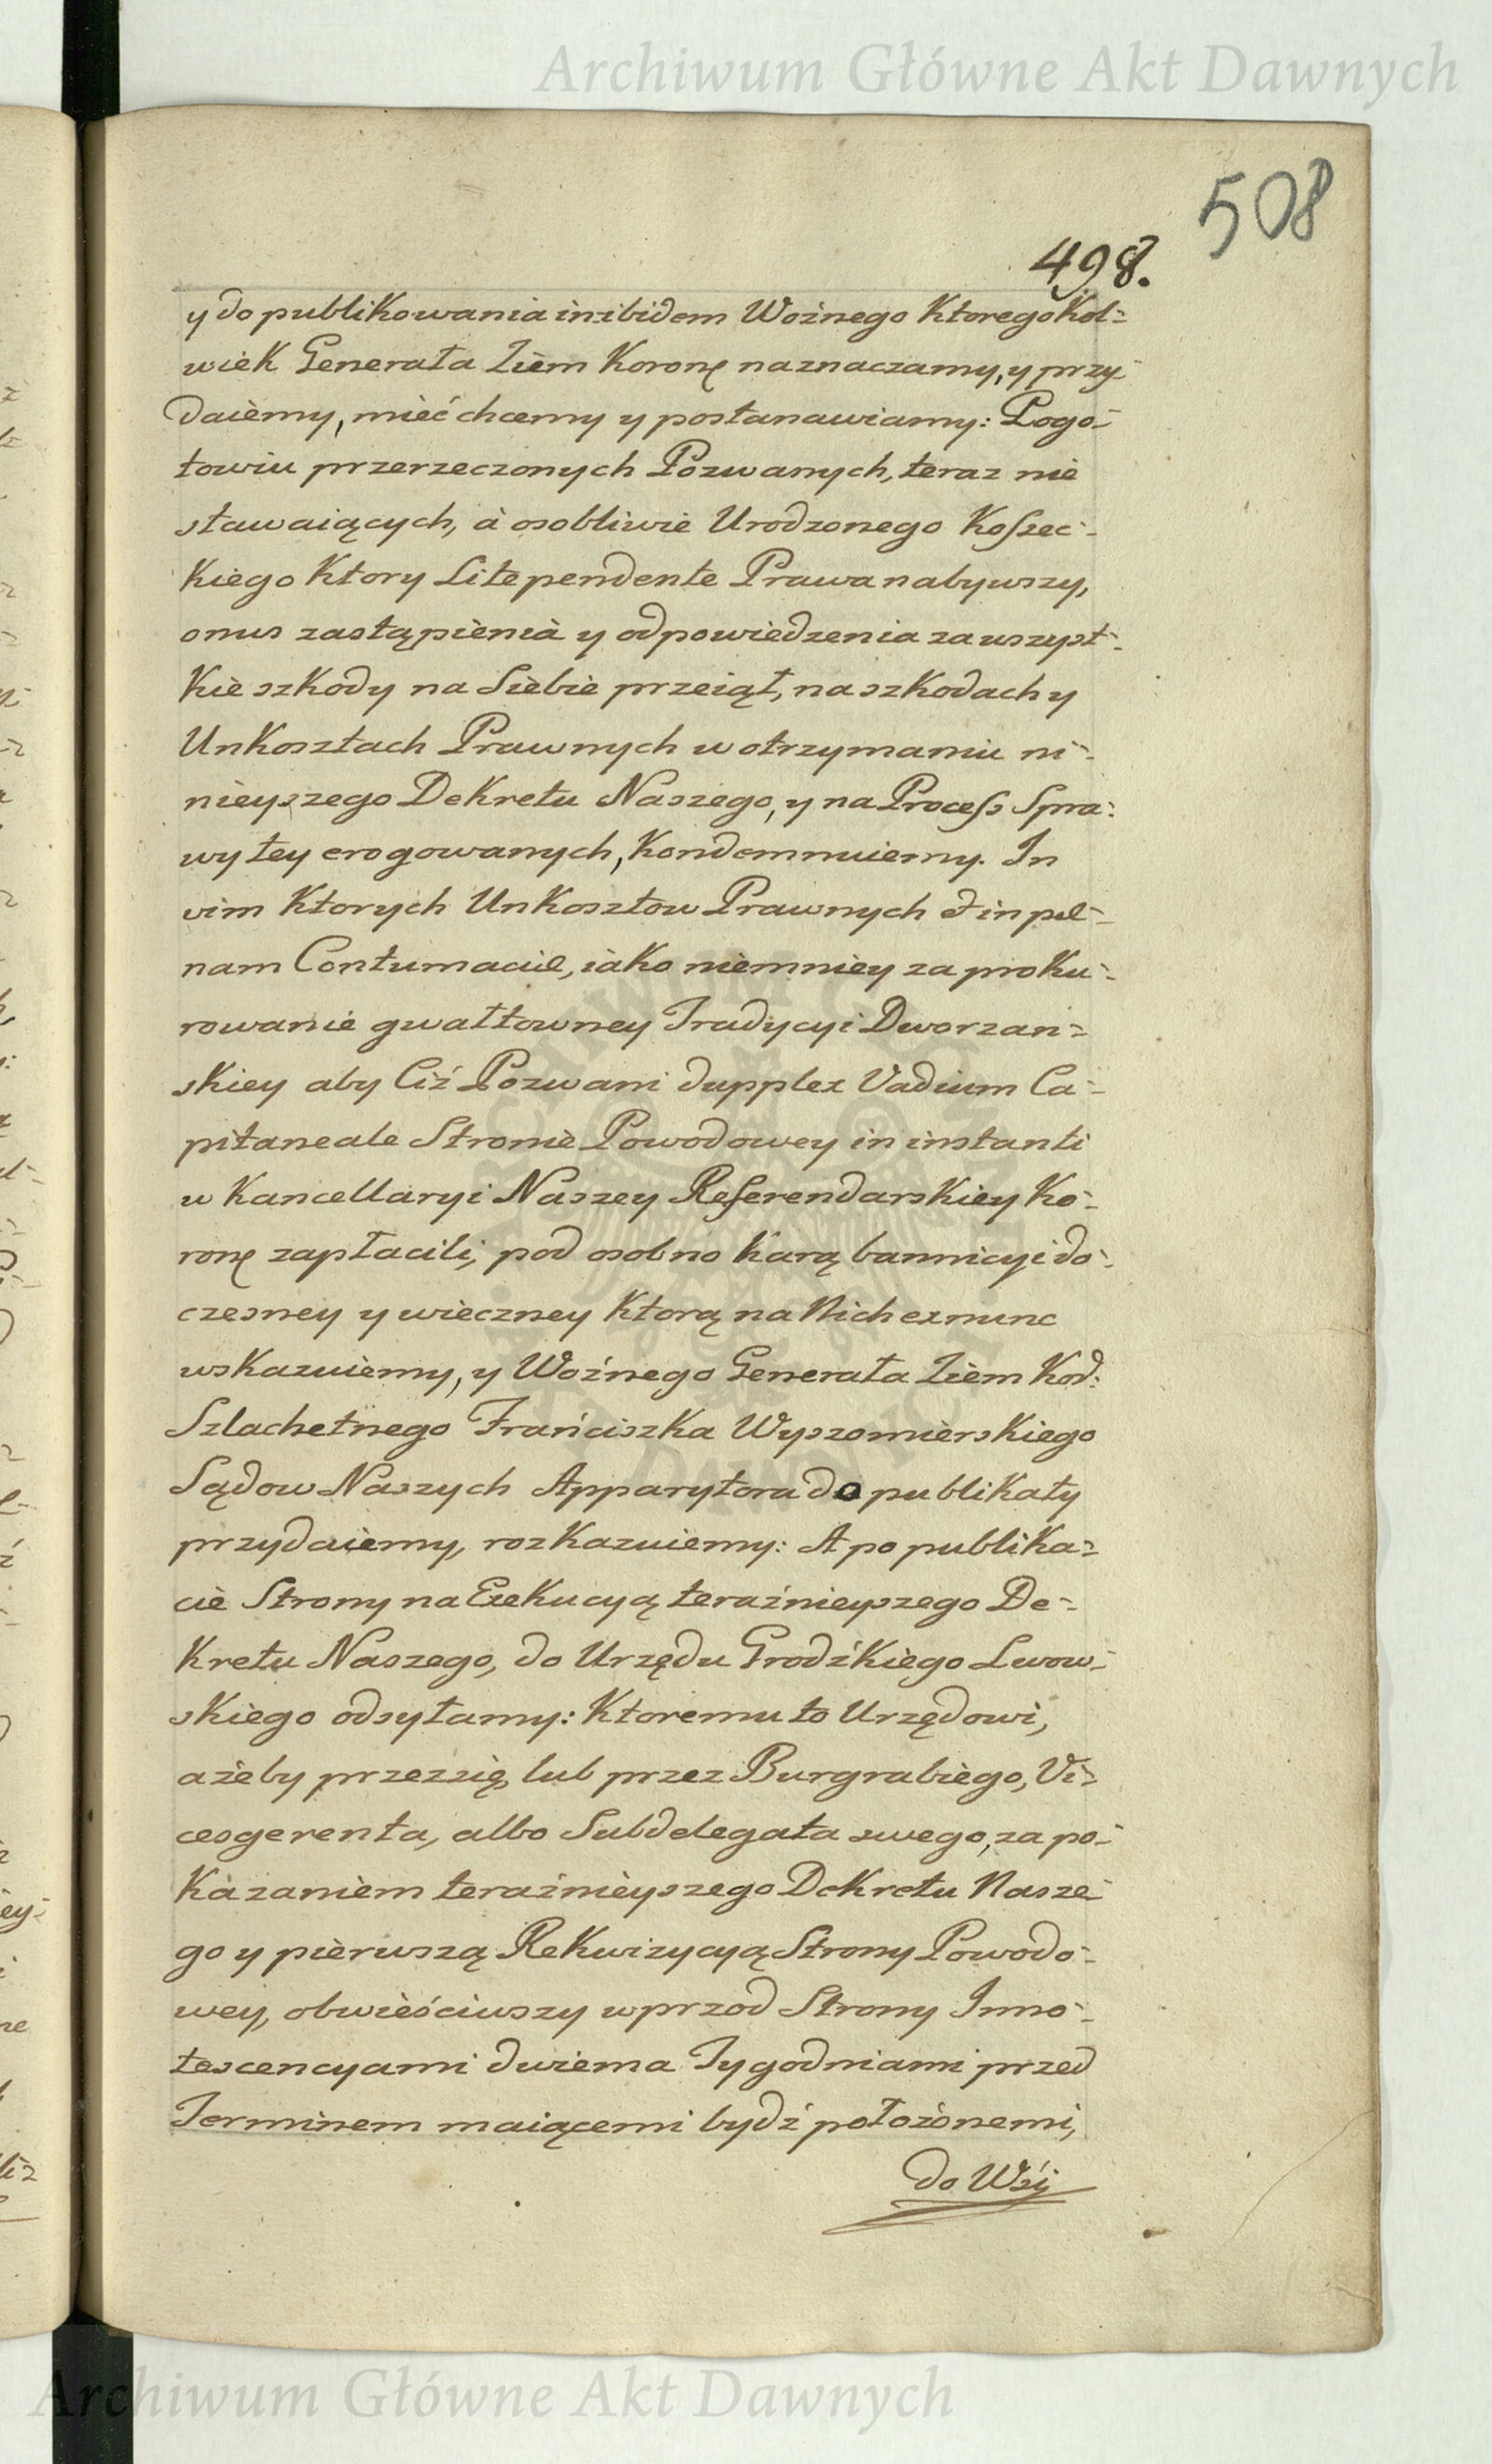 Archiwum Główne Akt Dawnych
508
498.
y do publikowania inibidem Woźnego Ktorego Kol=
wiek Generała Ziem Koronę naznaczamy, y przy=
daiemy, mieć chcemy y postanawiamy: Pogo=
towiu przerzeczonych Pozwanych, teraz nie
stawaiących, à osobliwie Urodzonego Koſzec=
kiego Ktory Litependente Prawa nabywszy,
onus zastąpienia y odpowiedzenia za wszyst=
kie szkody na Siebie przeiął, na szkodach y
Unkosztach Prawnych w otrzymaniu ni=
nieyszego Dekretu Naszego, y na Proceſs Spra=
wy tey erogowanych, Kondemnuiemy. In
vim Ktorych Unkosztow Prawnych & in pœ=
nam Contumaciæ, iako niemniey za proku=
rowanie gwałtowney Tradycyi Dworzań=
skiey aby Ciż Pozwani dupplex Vadium Ca=
pitaneale Stronie Powodowey in instanti
w Kancellaryi Naszey Referendarskiey Ko=
ronę zapłacili, pod osobno Karą bannicyi do=
czesney y wieczney Ktorą na Nich ex nunc
wskazuiemy, y Woźnego Generała Ziem Kor:
Szlachetnego Franciszka Wyszomierskiego
Sądow Naszych Apparytora do publikaty
przydaiemy, rozkazuiemy: A po publika=
cie Strony na Exekucyą teraźnieyszego De=
kretu Naszego, do Urzędu Grodźkiego Lwow=
skiego odsyłamy: Ktoremu to Urzędowi,
ażeby przez się, lub przez Burgrabiego, Vi=
cesgerenta, albo Subdelegata swego, za po=
kazaniem teraźnieyszego Dekretu Nasze=
go y pierwszą Rekwizycyą Strony Powodo=
wey, obwieściwszy wprzod Strony Inno=
tescencyami dwiema Tygodniami przed
Terminem maiącemi bydź położonemi,
do Wsi
Archiwum Główne Akt Dawnych